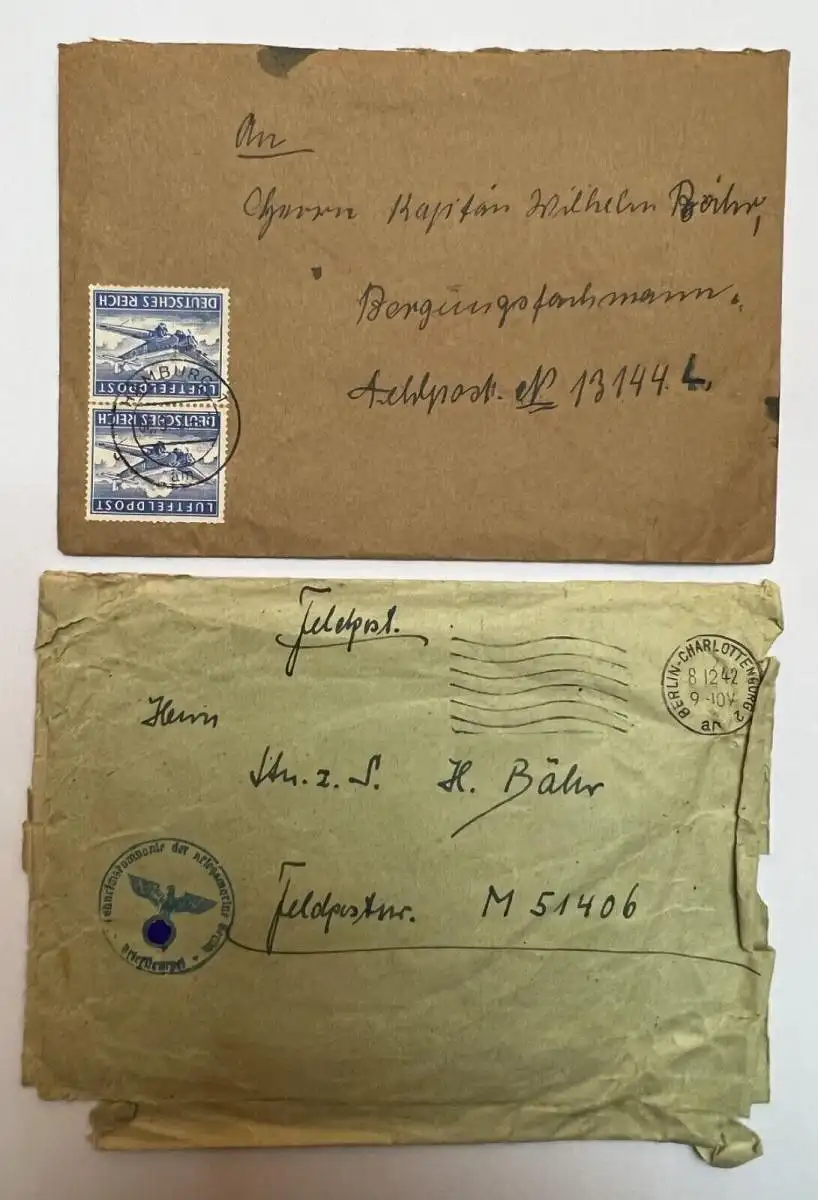 An
Herrn Kapitän Wilhelm Bähr,
Bergungsfachmann.
Feldpost. N 13144. L.
DEUTSCHES REICH
LUFTFELDPOST
DEUTSCHES REICH
LUFTFELDPOST
HAMBURG 1
Feldpost.
BERLIN-CHARLOTTENBURG 2
8.12.42
9-10V
an
Herrn
Ltn. z. S. H. Bähr
Feldpostnr. M 51406
der Kriegsmarine Berlin
Briefstempel